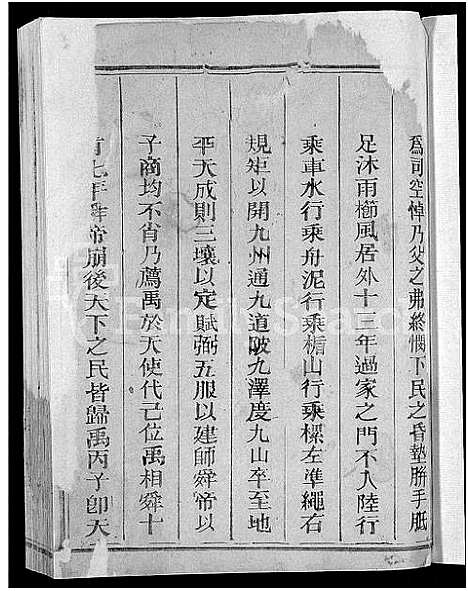 為司空悼乃父之弗終憫下民之昏墊胼手胝
足沐雨櫛風居外十三年過家之門不入陸行
乘車水行乘舟泥行乘楯山行乘樏左準繩右
規矩以開九州通九道陂九澤度九山卒至地
平天成則三壤以定賦弼五服以建師舜帝以
子商均不肖乃薦禹於天使代己位禹相舜十
有七年舜帝崩後天下之民皆歸禹丙子卽天